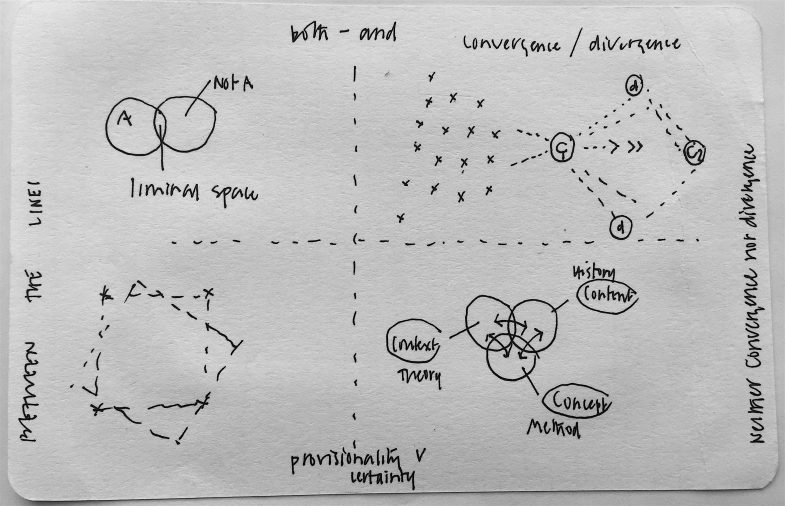 both - and
convergence / divergence
Not A
A
liminal space
C1
d
C2
d
BETWEEN THE LINES
Neither convergence nor divergence
History
Content
Context
Theory
Concept
Method
provisionality v
certainty